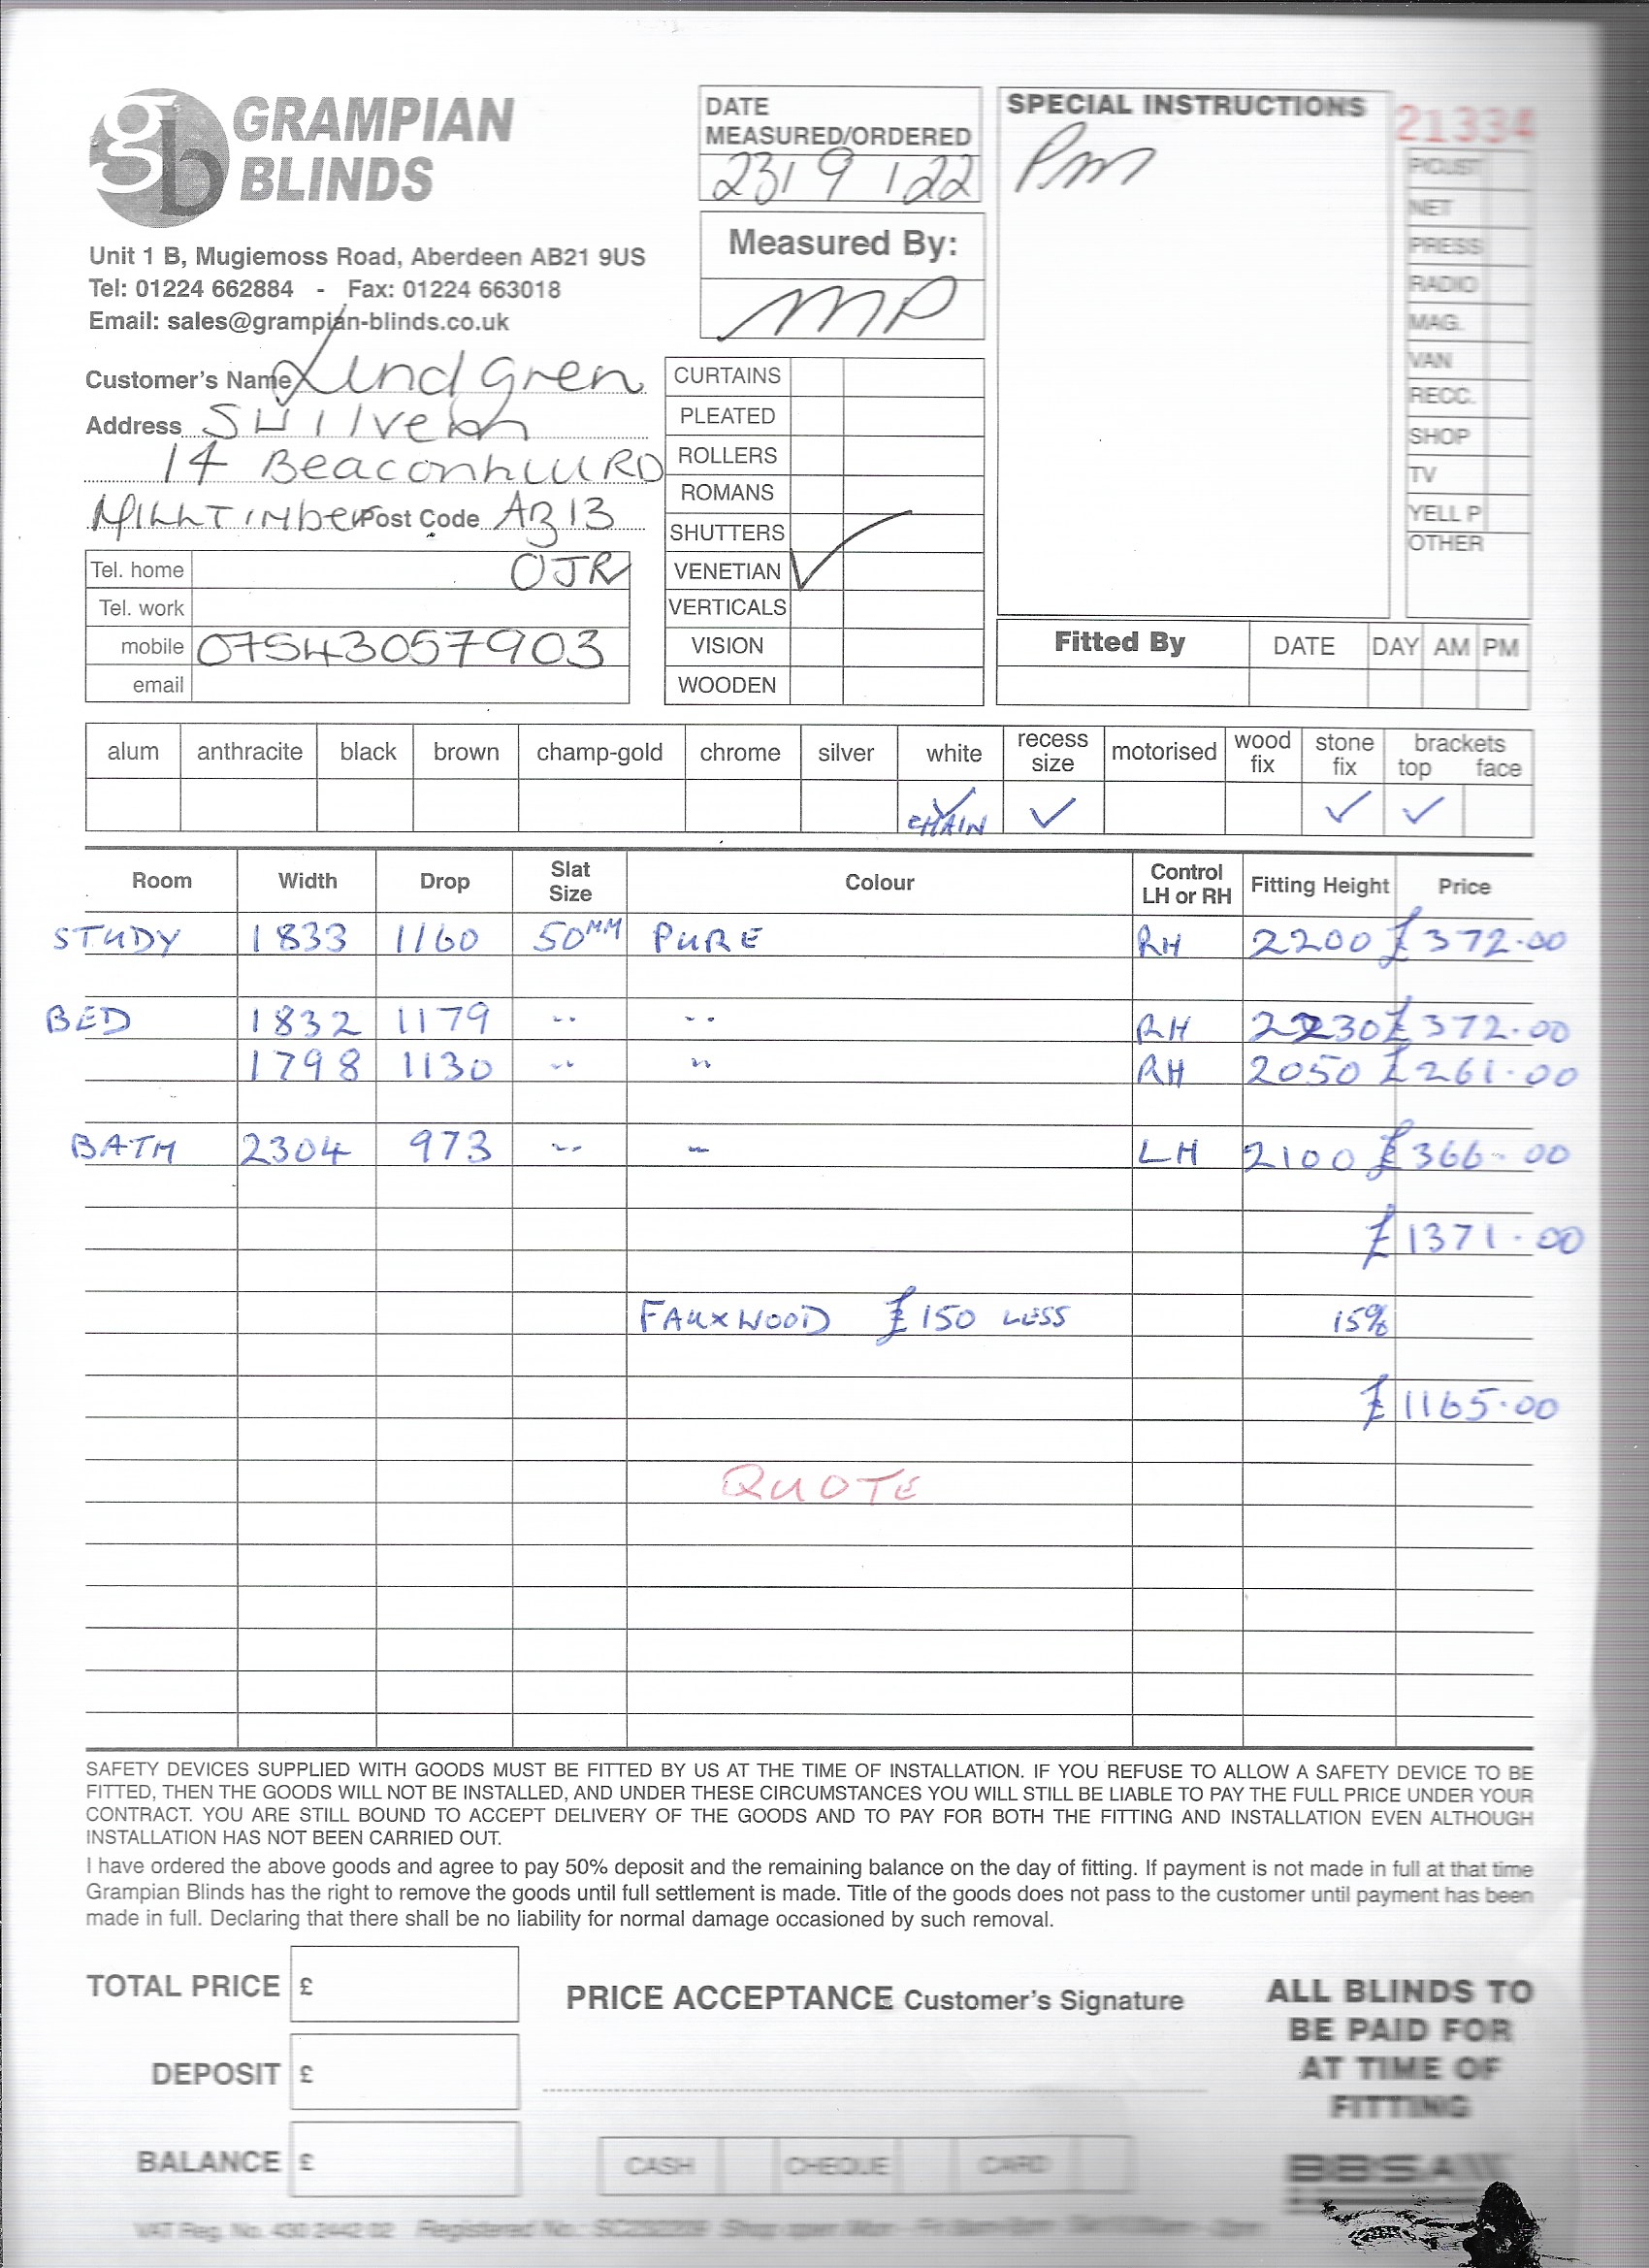 GRAMPIAN
BLINDS
Unit 1 B, Mugiemoss Road, Aberdeen AB21 9US
Tel: 01224 662884 - Fax: 01224 663018
Email: sales@grampian-blinds.co.uk
DATE
MEASURED/ORDERED
23/9/22
Measured By:
MP
SPECIAL INSTRUCTIONS
Pm
21334
P/CUST
NET
PRESS
RADIO
MAG.
VAN
RECC.
SHOP
TV
YELL P
OTHER
Customer's Name Lindgren
Address
14 Beaconhill RD
MILLTIMber Post Code AB13
0JR
Tel. home
Tel. work
mobile 07543057903
email
CURTAINS
PLEATED
ROLLERS
ROMANS
SHUTTERS
VENETIAN ✓
VERTICALS
VISION
WOODEN
Fitted By DATE DAY AM PM
alum anthracite black brown champ-gold chrome silver white recess size motorised wood fix stone fix brackets top face
✓ CHAIN ✓ ✓ ✓
Room Width Drop Slat Size Colour Control LH or RH Fitting Height Price
STUDY 1833 1160 50MM PURE RH 2200 £372.00
BED 1832 1179 " " RH 2230 £372.00
1798 1130 " " RH 2050 £261.00
BATH 2304 973 " " LH 2100 £366.00
£1371.00
FAUXWOOD £150 LESS 15%
£1165.00
QUOTE
SAFETY DEVICES SUPPLIED WITH GOODS MUST BE FITTED BY US AT THE TIME OF INSTALLATION. IF YOU REFUSE TO ALLOW A SAFETY DEVICE TO BE
FITTED, THEN THE GOODS WILL NOT BE INSTALLED, AND UNDER THESE CIRCUMSTANCES YOU WILL STILL BE LIABLE TO PAY THE FULL PRICE UNDER YOUR
CONTRACT. YOU ARE STILL BOUND TO ACCEPT DELIVERY OF THE GOODS AND TO PAY FOR BOTH THE FITTING AND INSTALLATION EVEN ALTHOUGH
INSTALLATION HAS NOT BEEN CARRIED OUT.
I have ordered the above goods and agree to pay 50% deposit and the remaining balance on the day of fitting. If payment is not made in full at that time
Grampian Blinds has the right to remove the goods until full settlement is made. Title of the goods does not pass to the customer until payment has been
made in full. Declaring that there shall be no liability for normal damage occasioned by such removal.
TOTAL PRICE £
DEPOSIT £
BALANCE £
PRICE ACCEPTANCE Customer's Signature
CASH CHEQUE CARD
ALL BLINDS TO
BE PAID FOR
AT TIME OF
FITTING
BBSA
VAT Reg. No. 430 2442 02 Registered No.: